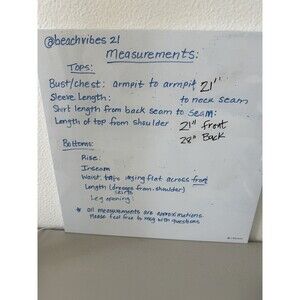 @beachvibes 21
Measurements:
Tops:
Bust/chest: armpit to armpit 21"
Sleeve Length: to neck seam
Shirt length from back seam to seam:
Length of top from shoulder 21" front
28" Back
Bottoms:
Rise:
Inseam
Waist: laying flat across front
Length (dresses from shoulder)
skirts
Leg opening:
* all measurements are approximations
Please feel free to msg with questions